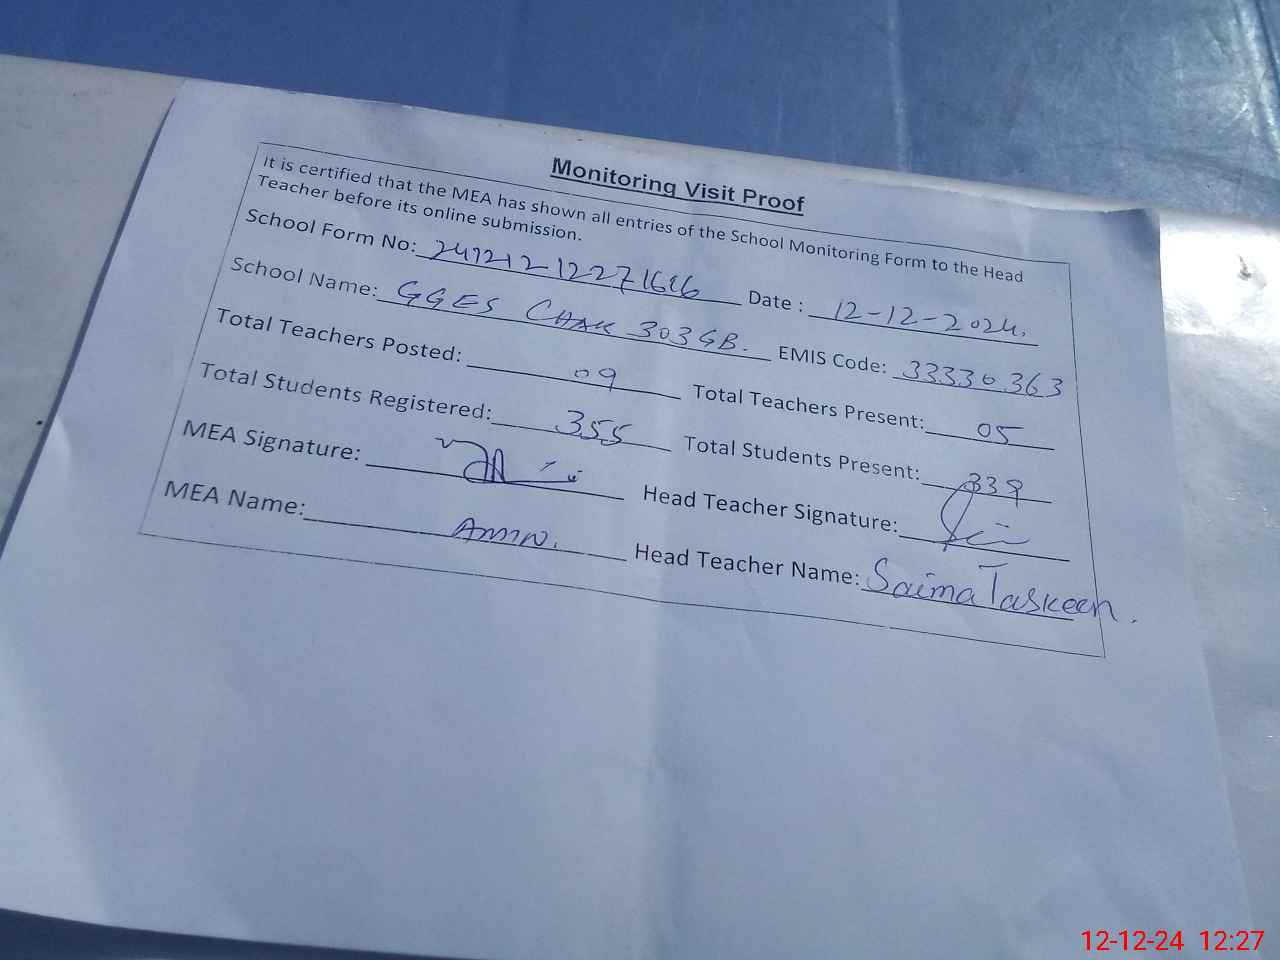 Monitoring Visit Proof
It is certified that the MEA has shown all entries of the School Monitoring Form to the Head
Teacher before its online submission.
School Form No: Date : 12-12-2024.
School Name: GGES CHAK 303GB. EMIS Code: 33330363
Total Teachers Posted: 09 Total Teachers Present: 05
Total Students Registered: 355 Total Students Present: 339
MEA Signature: Head Teacher Signature:
MEA Name: Amin. Head Teacher Name: Saima Taskeen.
12-12-24 12:27